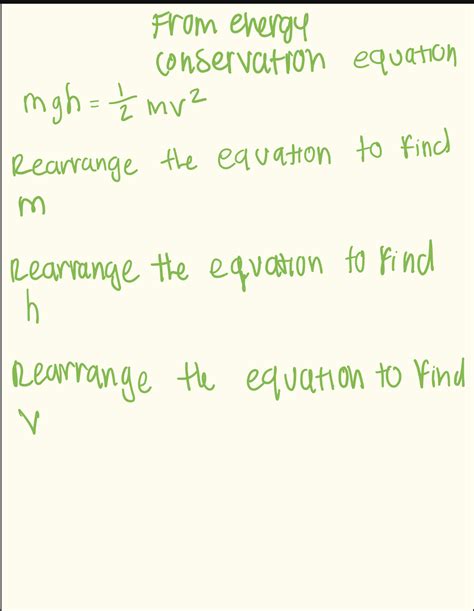 From energy
conservation equation
mgh = 1/2 mv²
Rearrange the equation to find
m
Rearrange the equation to find
h
Rearrange the equation to find
v